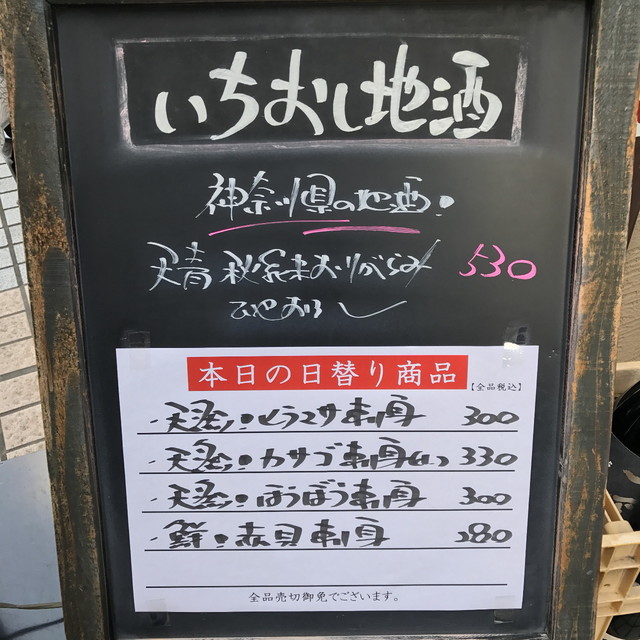 いちおし地酒
神奈川県の地酒!
天青 秋純米おりがらみ 530
ひやおろし
本日の日替り商品
【全品税込】
・天然!ヒラマサ刺身 300
・天然!カサゴ刺身 330
・天然!ほうぼう刺身 300
・鮮!赤貝刺身 280
全品売切御免でございます。